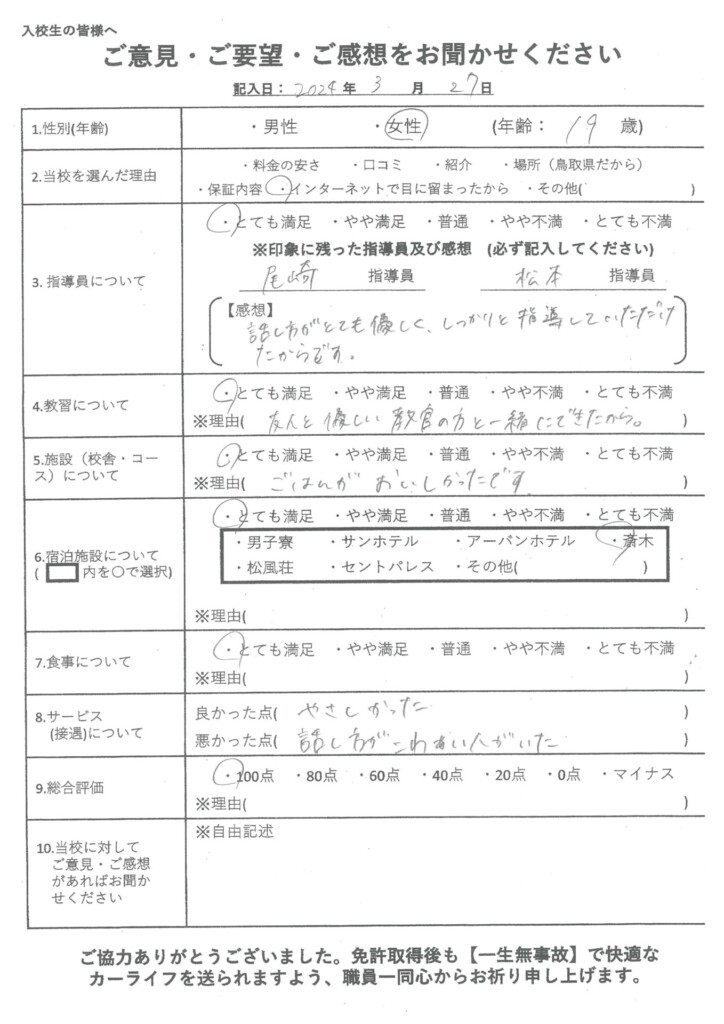 入校生の皆様へ
ご意見・ご要望・ご感想をお聞かせください
記入日：2024年 3 月 27日
1.性別(年齢)
・男性 ・女性 (年齢： 19 歳)
2.当校を選んだ理由
・料金の安さ ・口コミ ・紹介 ・場所（鳥取県だから）
・保証内容 ・インターネットで目に留まったから ・その他( )
3. 指導員について
・とても満足 ・やや満足 ・普通 ・やや不満 ・とても不満
※印象に残った指導員及び感想 (必ず記入してください)
尾崎 指導員 松本 指導員
【感想】
話し方がとても優しく、しっかりと指導していただけ
たからです。
4.教習について
・とても満足 ・やや満足 ・普通 ・やや不満 ・とても不満
※理由( 友人と優しい教官の方と一緒にできたから。 )
5.施設（校舎・コー
ス）について
・とても満足 ・やや満足 ・普通 ・やや不満 ・とても不満
※理由( ごはんが おいしかったです )
6.宿泊施設について
( 内を〇で選択)
・とても満足 ・やや満足 ・普通 ・やや不満 ・とても不満
・男子寮 ・サンホテル ・アーバンホテル ・斎木
・松風荘 ・セントパレス ・その他( )
※理由( )
7.食事について
・とても満足 ・やや満足 ・普通 ・やや不満 ・とても不満
※理由( )
8.サービス
(接遇)について
良かった点( やさしかった )
悪かった点( 話し方がこわい人がいた )
9.総合評価
・100点 ・80点 ・60点 ・40点 ・20点 ・0点 ・マイナス
※理由( )
10.当校に対して
ご意見・ご感想
があればお聞か
せください
※自由記述
ご協力ありがとうございました。免許取得後も【一生無事故】で快適な
カーライフを送られますよう、職員一同心からお祈り申し上げます。